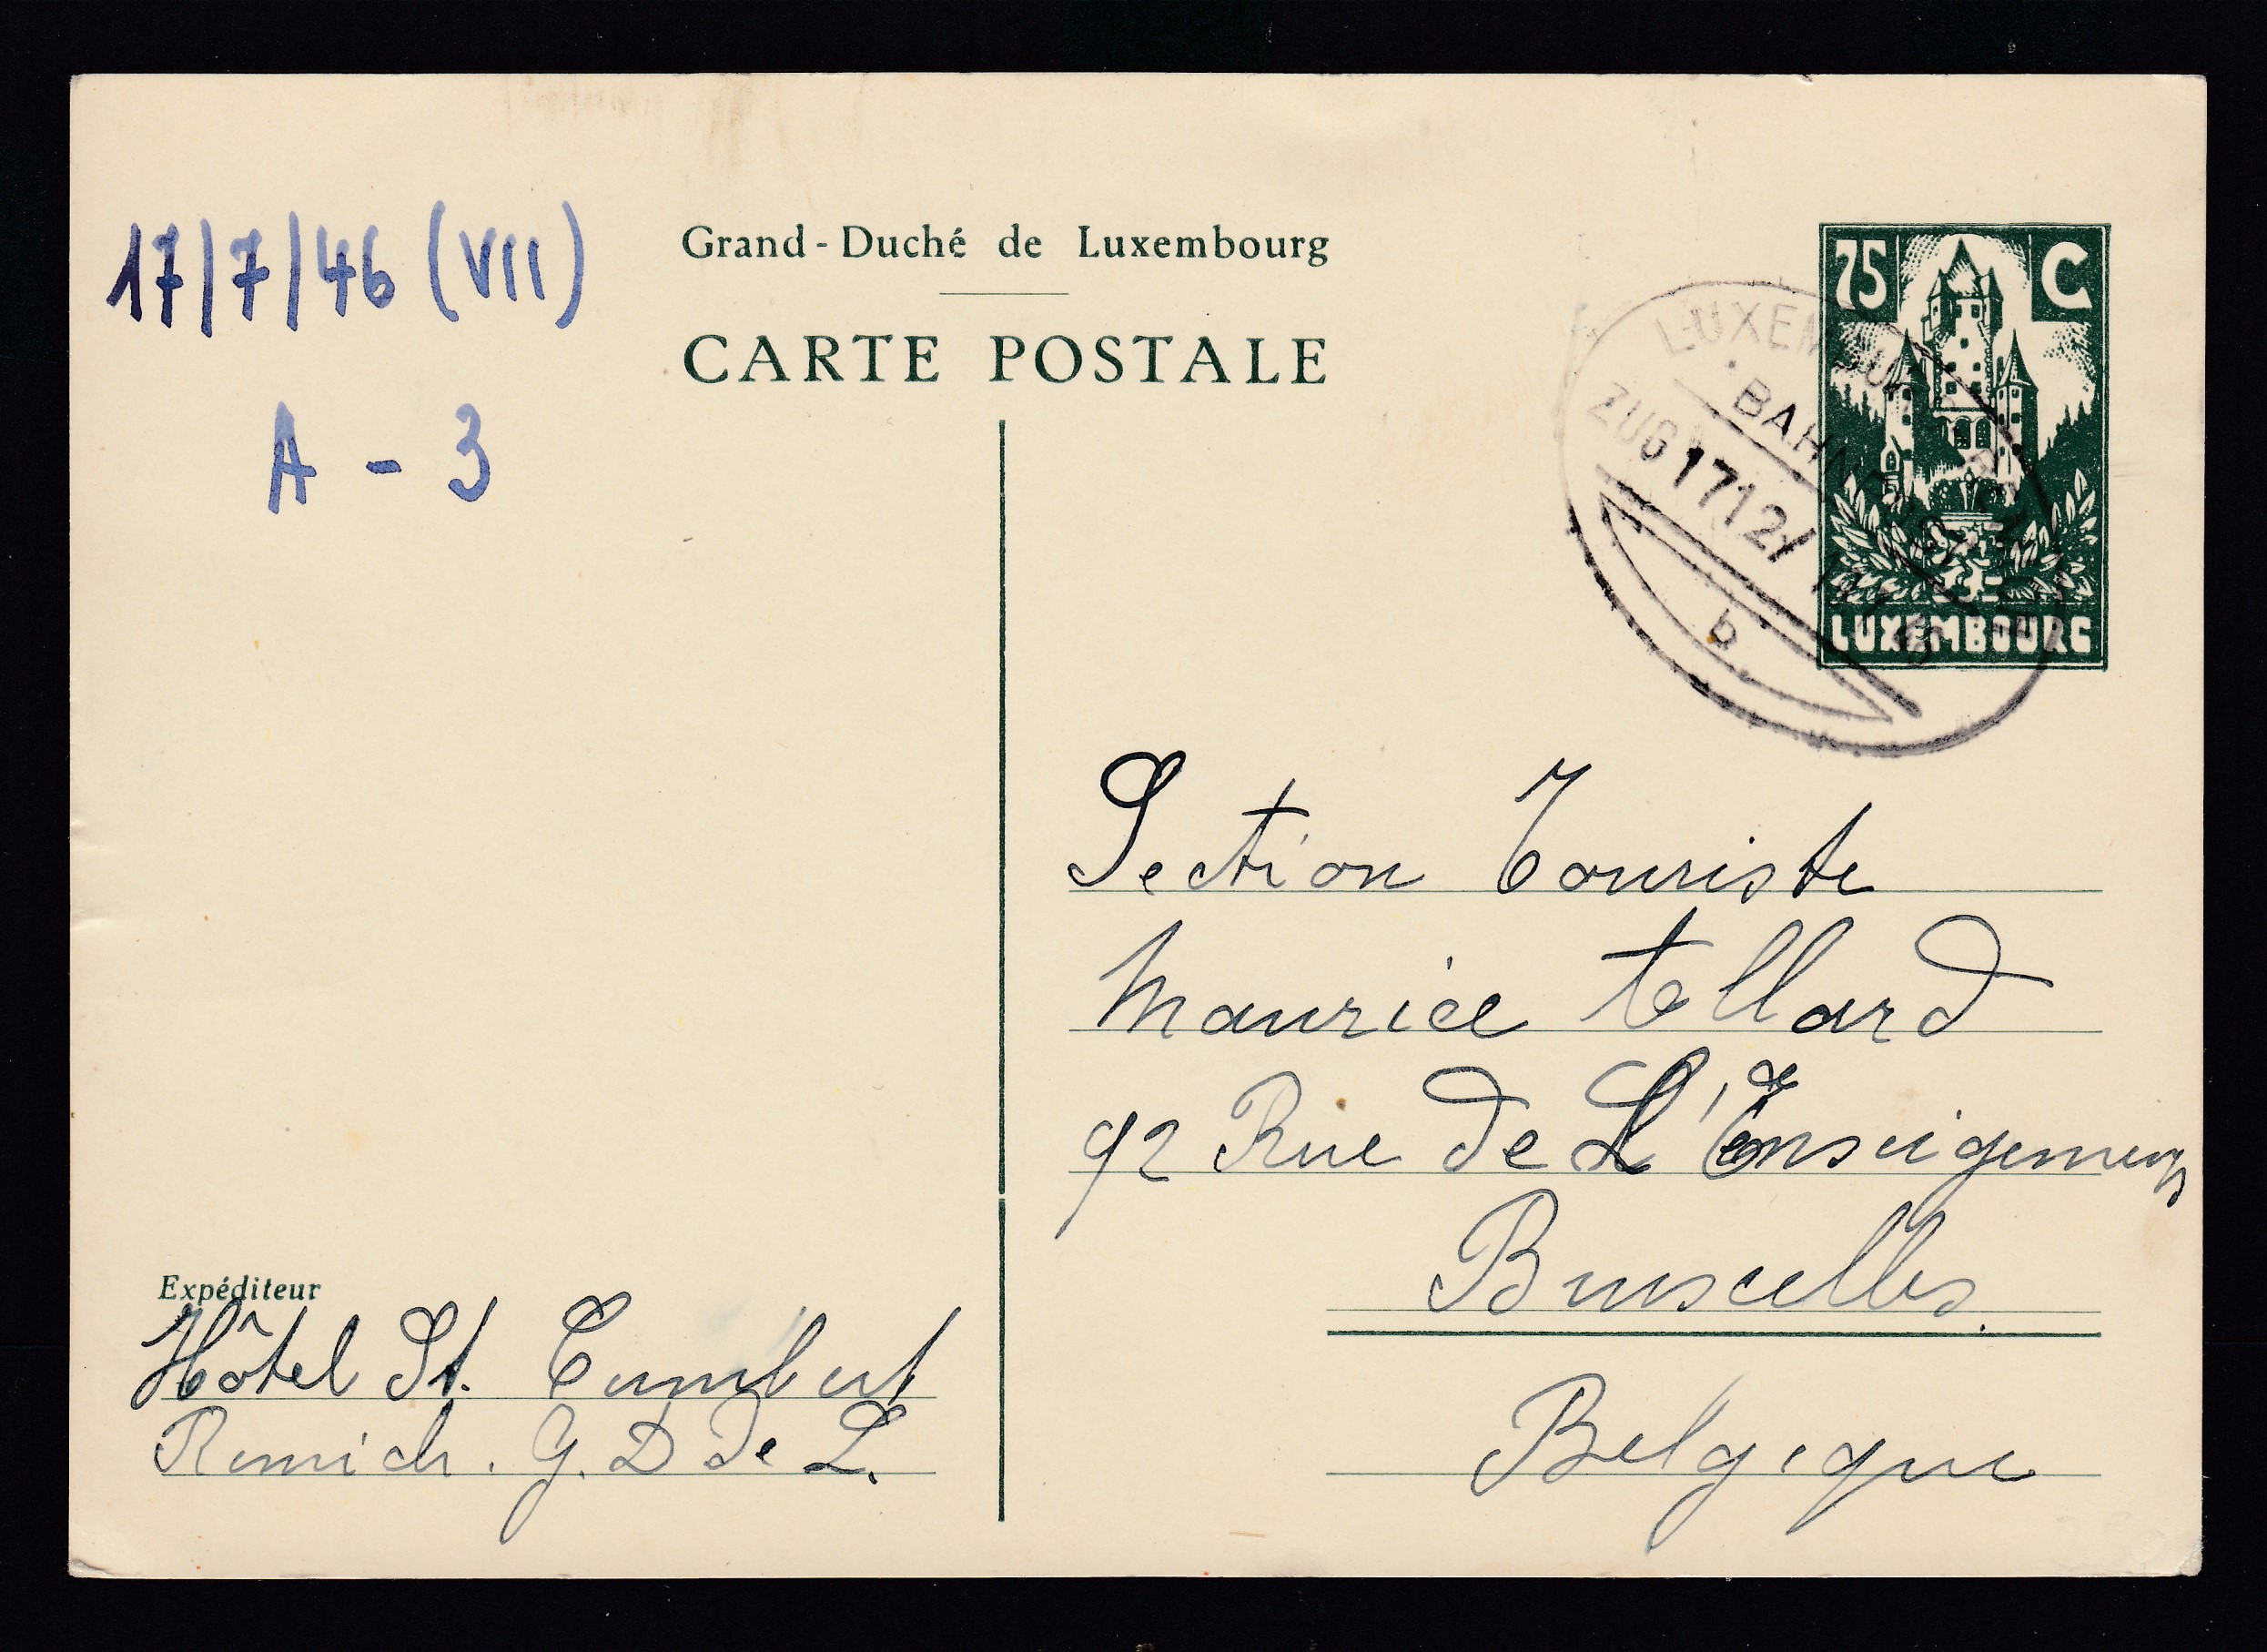 17/7/46 (VII)
A - 3
Grand-Duché de Luxembourg
CARTE POSTALE
75 C
LUXEMBOURG
BAHNPOST
ZUG 1712/
b
Section Touriste
Maurice
92 Rue de L'Enseigement
Bruxelles
Belgique
Expéditeur
Hôtel St. Cunibert
Remich. G. D de L.